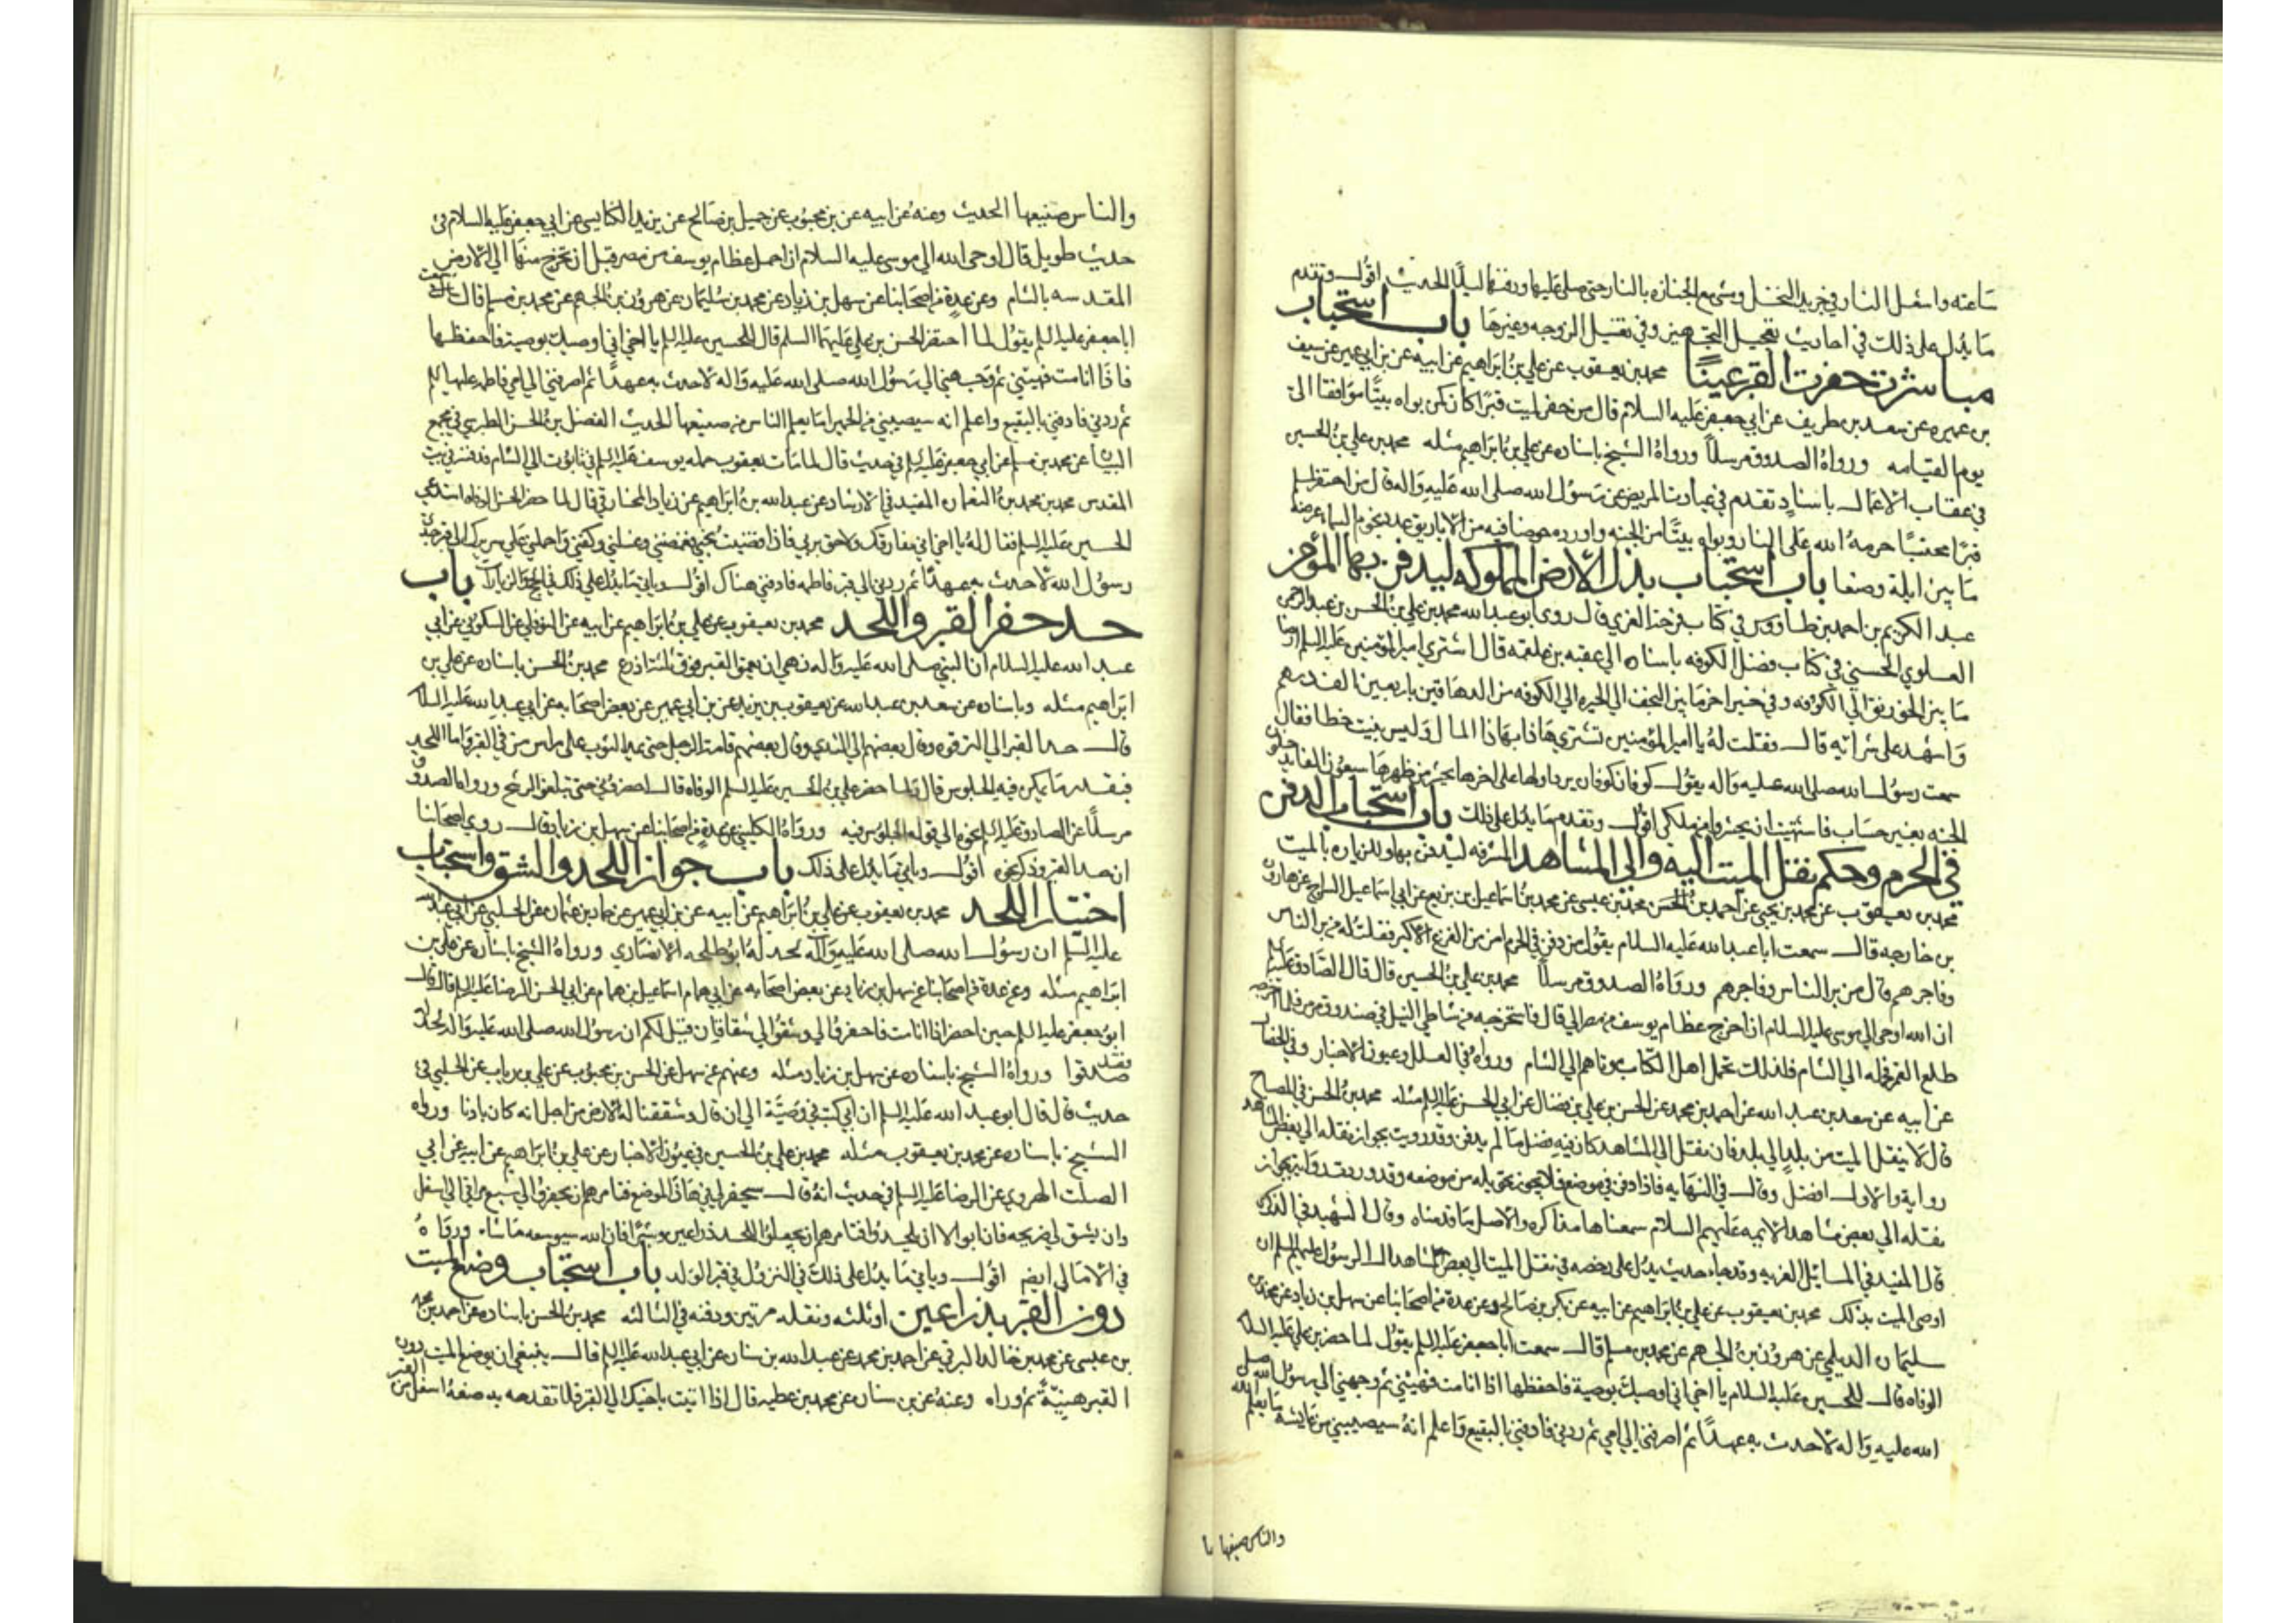 ساعته واشعل النار في جريد النخل ومشى مع الجنازه بالنار حتى صلى عليها ودفنها ليلًا الحديث اقول وتقدم
ما يدل على ذلك في احاديث تعجيل التجهيز وفي تغسيل الزوجه وغيرها باب استحباب
مباشرت حفرت القبر عينًا محمد بن يعقوب عن علي بن ابراهيم عن ابيه عن بن ابي عمير عن سيف
بن عميره عن سعد بن طريف عن ابي جعفر عليه السلام قال من حفر لميت قبرًا كان كمن بواه بيتًا موافقا الى
يوم القيامه ورواه الصدوق مرسلًا ورواه الشيخ باسناده عن علي بن ابراهيم مثله محمد بن علي بن الحسين
في عقاب الاعمال باسناد تقدم في عيادت المريض عن رسول الله صلى الله عليه واله قال من احتفر لمسلم
قبرًا محتسبًا حرمه الله على النار وبواه بيتًا من الجنه واورده حوضا فيه من الاباريق عدد نجوم السماء عرضه
ما بين ايلة وصنعا باب استحباب بذل الارض المملوكه ليدفن بها المؤمن
عبد الكريم بن احمد بن طاووس في كتاب فرحة الغري قال روى ابو عبد الله محمد بن علي بن الحسن بن عبد الرحمن
العلوي الحسني في كتاب فضل الكوفه باسناده الى عقبه بن علقمه قال اشترى امير المؤمنين عليه السلم ارضا
ما بين الخورنق الى الكوفه وفي خبر اخر ما بين النجف الى الحيره الى الكوفه من الدهاقين باربعين الف درهم
واشهد على شرائه قال فقلت له يا امير المؤمنين تشتري هاذا بهاذا المال وليس ينبت خطا فقال
سمعت رسول الله صلى الله عليه واله يقول كوفان كوفان يرد اولها على اخرها يحشر من ظهرها سبعون الفا يدخلون
الجنه بغير حساب فاشتهيت ان يحشروا من ملكي اقول وتقدم ما يدل على ذلك باب استحباب الدفن
في الحرم وحكم نقل الميت اليه والى المشاهد المشرفه ليدفن بها وللزياره بالميت
محمد بن يعقوب عن محمد بن يحيى عن احمد بن محمد بن عيسى عن محمد بن اسماعيل بن بزيع عن ابي اسماعيل السراج عن هارون
بن خارجه قال سمعت ابا عبد الله عليه السلام يقول من دفن في الحرم امن من الفزع الاكبر فقلت له من بر الناس
وفاجرهم قال من بر الناس وفاجرهم ورواه الصدوق مرسلًا محمد بن علي بن الحسين قال قال الصادق عليه السلم
ان الله اوحى الى موسى عليه السلام ان اخرج عظام يوسف من مصر الى قال فاستخرجه من شاطي النيل في صندوق مرمر فلما اخرجه
طلع القمر فحمله الى الشام فلذلك تحمل اهل الكتاب موتاهم الى الشام ورواه في العلل وعيون الاخبار وفي الخصال
عن ابيه عن سعد بن عبد الله عن احمد بن محمد عن الحسن بن علي بن فضال عن ابي الحسن عليه السلم مثله محمد بن الحسن في المصباح
قال لا ينقل الميت من بلد الى بلد فان نقل الى المشاهد كان فيه فضل ما لم يدفن وقد رويت بجواز نقله الى بعض المشاهد
رواية والاول افضل وقال في النهايه فاذا دفن في موضع فلا يجوز تحويله من موضعه وقد وردت رواية بجواز
نقله الى بعض مشاهد الائمه عليهم السلام سمعناها مذاكره والاصل ما قدمناه وقال الشهيد في الذكرى
قال المفيد في المسائل الغريه وقد جاء حديث يدل على رخصه في نقل الميت الى بعض مشاهد ال الرسول عليهم السلم ان
اوصى الميت بذلك محمد بن يعقوب عن علي بن ابراهيم عن ابيه عن بكر بن صالح وعن عدة من اصحابنا عن سهل بن زياد عن محمد بن
سليمان الديلمي عن هرون بن الجهم عن محمد بن مسلم قال سمعت ابا جعفر عليه السلم يقول لما حضر بن علي عليه السلام
الوفاه قال للحسين عليه السلام يا اخي اني اوصيك بوصية فاحفظها اذا انا مت فهيئني ثم وجهني الى رسول الله صلى
الله عليه واله لاحدث به عهدًا ثم اصرفني الى امي ثم ردني فادفني بالبقيع واعلم انه سيصيبني من عايشه ما يعلم الله
والناس صنيعها با
والناس صنيعها الحديث وعنه عن ابيه عن بن محبوب عن جميل بن صالح عن يزيد الكناسي عن ابي جعفر عليه السلام في
حديث طويل قال اوحى الله الى موسى عليه السلام ان احمل عظام يوسف من مصر قبل ان تخرج منها الى الارض
المقدسه بالشام وعن عدة من اصحابنا عن سهل بن زياد عن محمد بن سليمان عن هرون بن الجهم عن محمد بن مسلم قال سمعت
ابا جعفر عليه السلم يقول لما احتضر الحسن بن علي عليهما السلم قال للحسين عليه السلم يا اخي اني اوصيك بوصية فاحفظها
فاذا انا مت فهيئني ثم وجهني الى رسول الله صلى الله عليه واله لاحدث به عهدًا ثم اصرفني الى امي فاطمه عليها السلم
ثم ردني فادفني بالبقيع واعلم انه سيصيبني من الحميرا ما يعلم الناس من صنيعها الحديث الفضل بن الحسن الطبرسي في مجمع
البيان عن محمد بن مسلم عن ابي جعفر عليه السلم في حديث قال لما مات يعقوب حمله يوسف عليه السلم في تابوت الى الشام فدفنه في بيت
المقدس محمد بن محمد بن النعمان المفيد في الارشاد عن عبد الله بن ابراهيم عن زياد المخارقي قال لما حضر الحسن الوفاه استدعى
الحسين عليه السلم فقال له يا اخي اني مفارقك ولاحق بربي فاذا قضيت نحبي فغمضني وغسلني وكفني واحملني على سريري الى قبر جدي
رسول الله لاحدث به عهدًا ثم ردني الى قبر فاطمه فادفني هناك اقول وياتي ما يدل على ذلك في الحج والزيارات باب
حد حفر القبر واللحد محمد بن يعقوب عن علي بن ابراهيم عن ابيه عن النوفلي عن السكوني عن ابي
عبد الله عليه السلام ان النبي صلى الله عليه واله نهى ان يعمق القبر فوق ثلثة اذرع محمد بن الحسن باسناده عن علي بن
ابراهيم مثله وباسناده عن سعد بن عبد الله عن يعقوب بن يزيد عن بن ابي عمير عن بعض اصحابه عن ابي عبد الله عليه السلام
قال حد القبر الى الترقوه وقال بعضهم الى الثدي وقال بعضهم قامت الرجل حتى يمد الثوب على راس من في القبر واما اللحد
فبقدر ما يمكن فيه الجلوس قال ولما حضر علي بن الحسين عليه السلم الوفاه قال احفروا لي حتى تبلغوا الرشح ورواه الصدوق
مرسلًا عن الصادق عليه السلم نحوه الى قوله الجلوس فيه ورواه الكليني عن عدة من اصحابنا عن سهل بن زياد قال روى اصحابنا
ان حد القبر وذكر نحوه اقول وياتي ما يدل على ذلك باب جواز اللحد والشق واستحباب
اختيار اللحد محمد بن يعقوب عن علي بن ابراهيم عن ابيه عن بن ابي عمير عن حماد بن عثمان عن الحلبي عن ابي عبد الله
عليه السلم ان رسول الله صلى الله عليه واله لحد له ابو طلحه الانصاري ورواه الشيخ باسناده عن علي بن
ابراهيم مثله وعن عدة من اصحابنا عن سهل بن زياد عن بعض اصحابه عن ابي همام اسماعيل بن همام عن ابي الحسن الرضا عليه السلم قال قال
ابو جعفر عليه السلم حين احضر اذا انا مت فاحفروا لي وشقوا لي شقا فان قيل لكم ان رسول الله صلى الله عليه واله لحد له
فقد صدقوا ورواه الشيخ باسناده عن سهل بن زياد مثله وعنهم عن سهل عن الحسن بن محبوب عن علي بن رياب عن الحلبي في
حديث قال قال ابو عبد الله عليه السلم ان ابي كتب في وصيته الى ان قال وشققنا له الارض من اجل انه كان بادنا ورواه
الشيخ باسناده عن محمد بن يعقوب مثله محمد بن علي بن الحسين في عيون الاخبار عن علي بن ابراهيم عن ابيه عن ابي
الصلت الهروي عن الرضا عليه السلم في حديث انه قال سيحفر لي في هاذا الموضع فتامرهم ان يحفروا لي سبع مراقي الى اسفل
وان يشق لي ضريحه فان ابوا الا ان يلحدوا فتامرهم ان يجعلوا اللحد ذراعين وشبرًا فان الله سيوسعه ما شاء ورواه
في الامالي ايضم اقول وياتي ما يدل على ذلك في النزول في قبر الولد باب استحباب وضع الميت
دون القبر بذراعين او ثلثه ونقله مرتين ودفنه في الثالثه محمد بن الحسن باسناده عن احمد بن محمد
بن عيسى عن محمد بن خالد البرقي عن احمد بن محمد عن عبد الله بن سنان عن ابي عبد الله عليه السلم قال ينبغي ان يوضع الميت دون القبر
القبر هنيئة ثم واراه وعنه عن بن سنان عن محمد بن عطيه قال اذا اتيت باخيك الى القبر فلا تفدحه به ضعه اسفل من